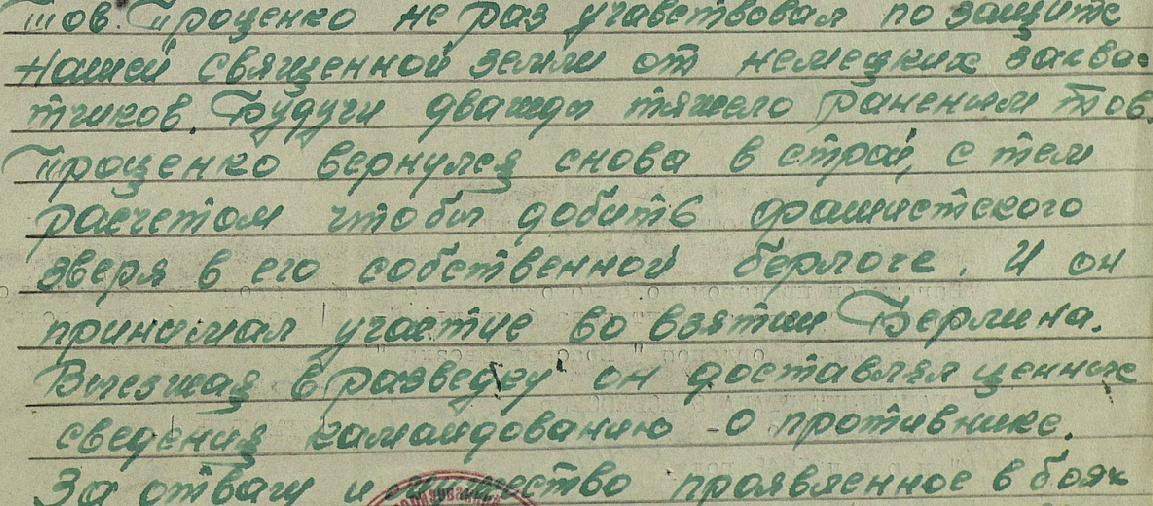 тов. Проценко не раз учавствовал по защите
нашей священной земли от немецких захва-
тчиков. Будучи дважды тяжело раненым тов.
Проценко вернулся снова в строй, с тем
расчетом чтобы добить фашистского
зверя в его собственной берлоге. И он
принимал участие во взятии Берлина.
Выезжая в разведку он доставлял ценные
сведения камандованию о противнике.
За отвагу и мужество проявленное в боях